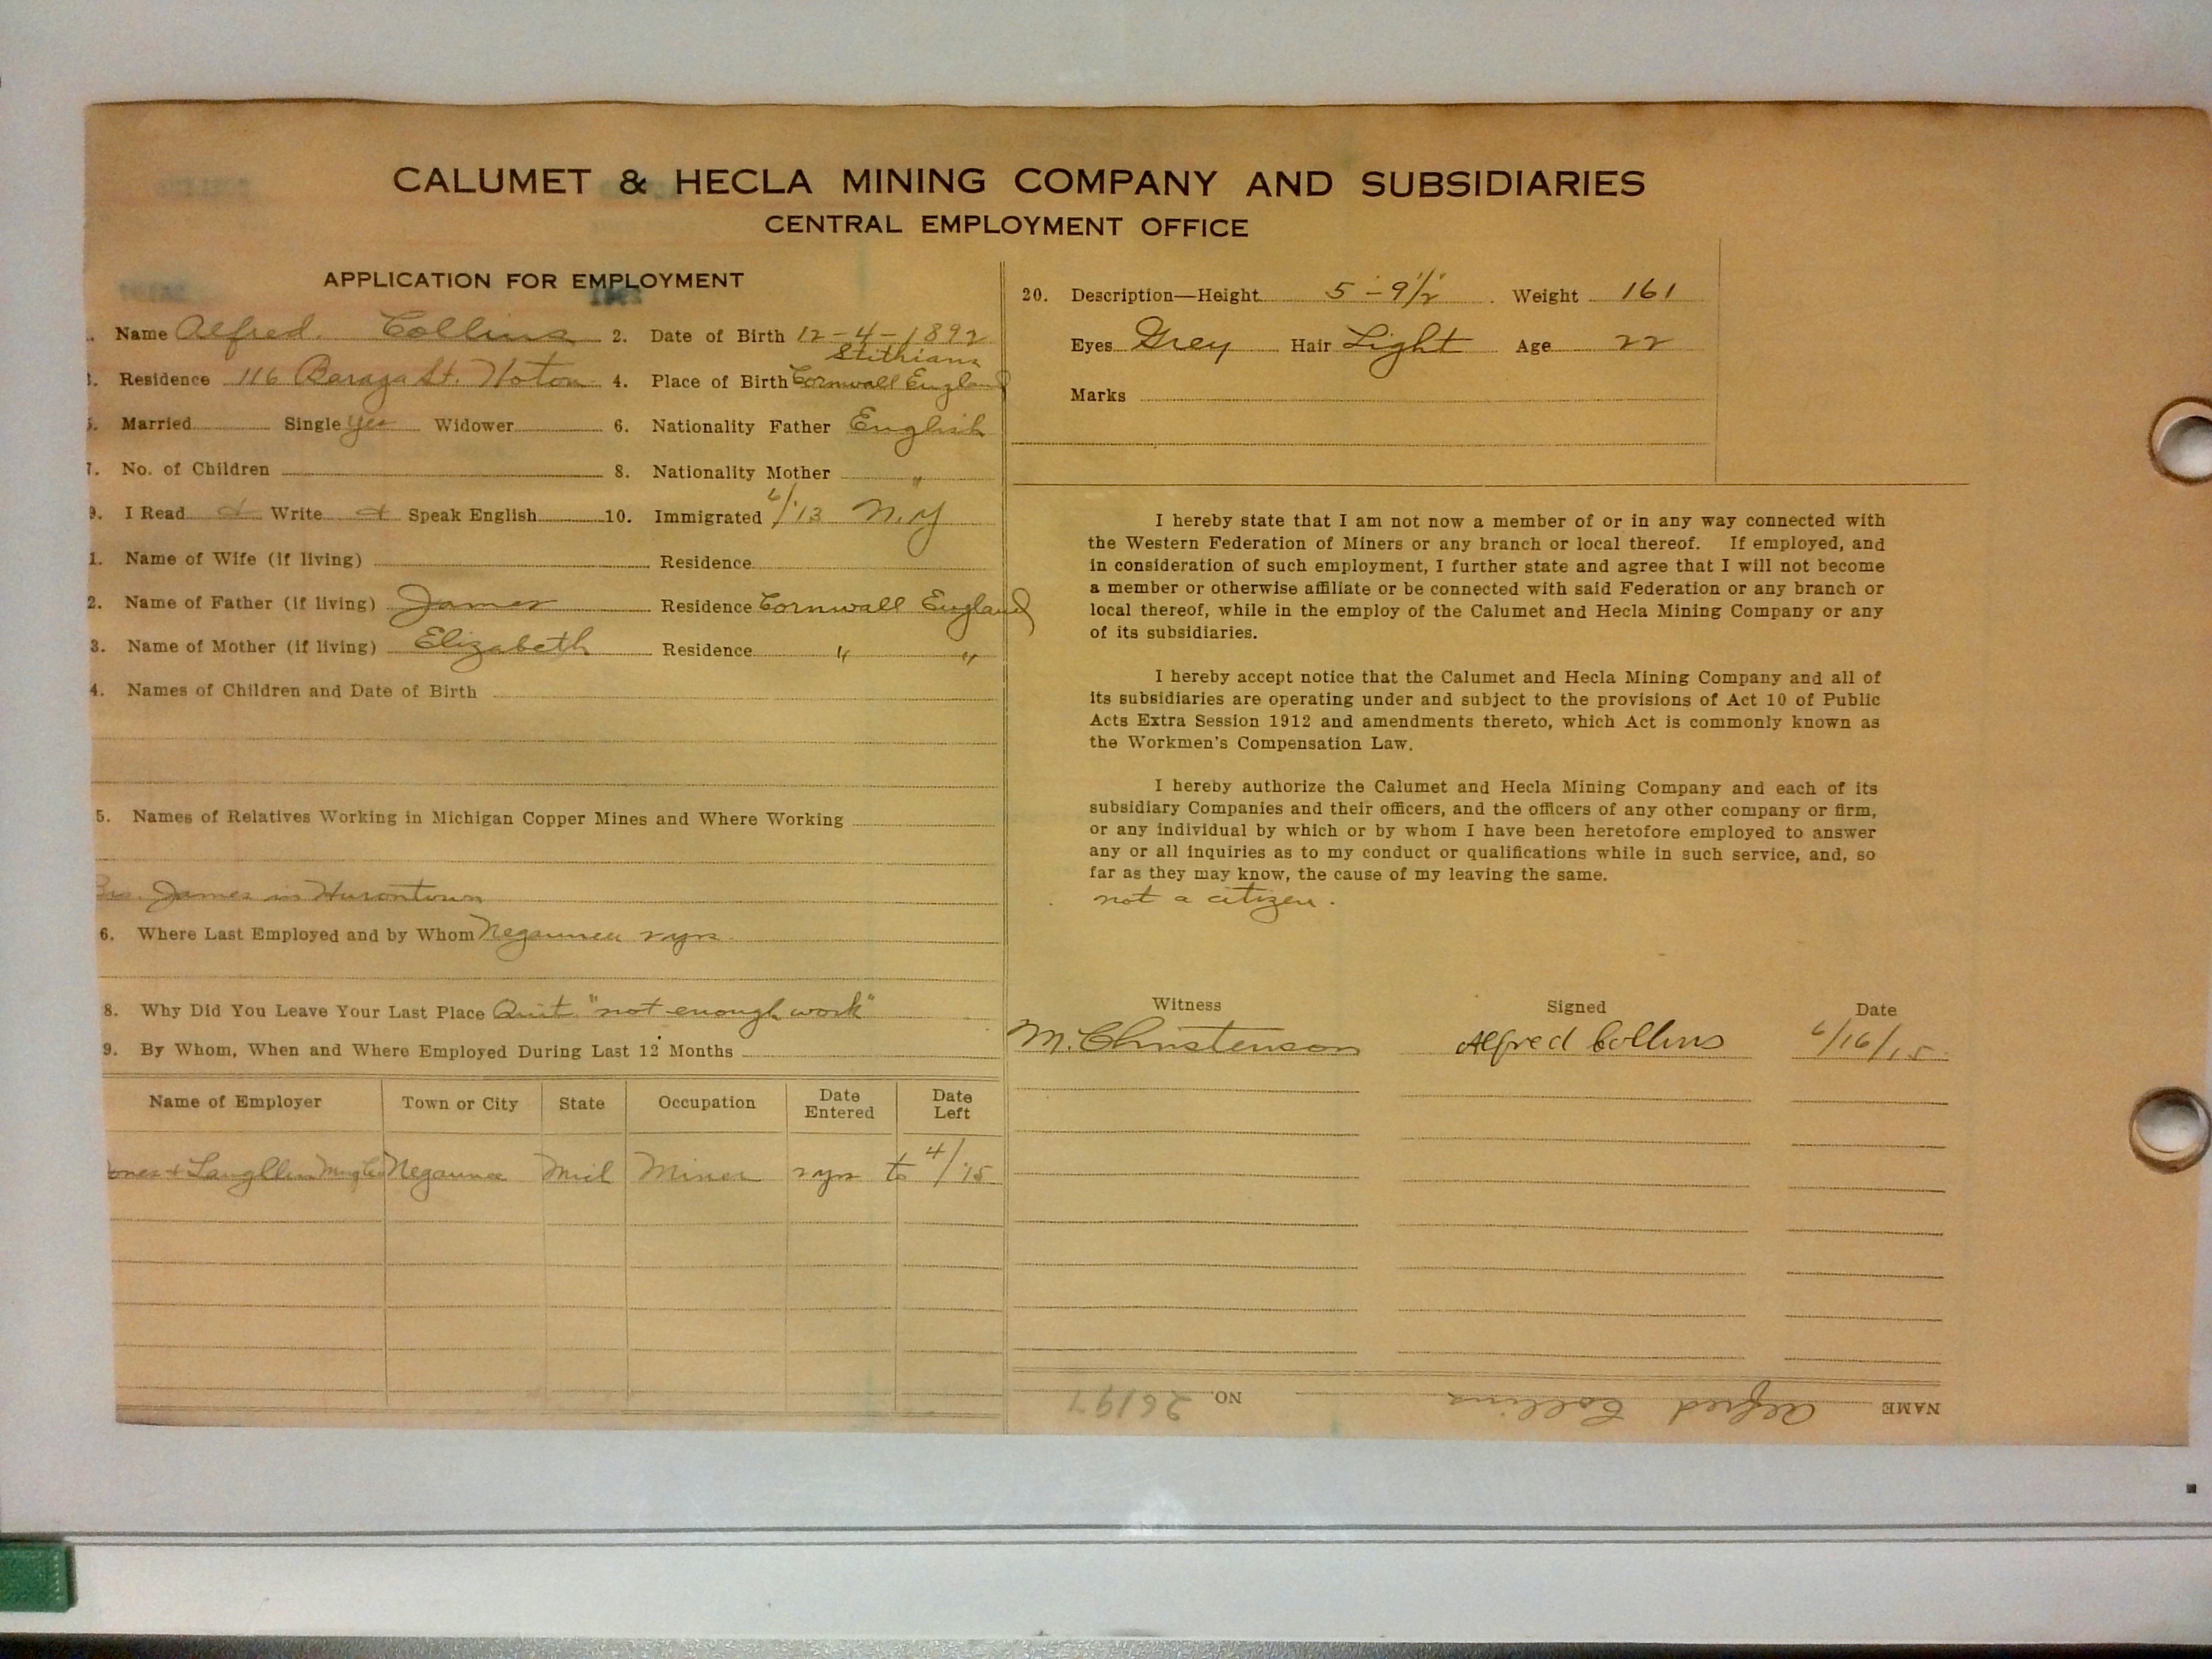 CALUMET & HECLA MINING COMPANY AND SUBSIDIARIES
CENTRAL EMPLOYMENT OFFICE
APPLICATION FOR EMPLOYMENT
Name Alfred. Collins 2. Date of Birth 12-4-1892
Stithians
Residence 116 Baraga St. Hoton 4. Place of Birth Cornwall England
Married Single Yes Widower 6. Nationality Father English
7. No. of Children 8. Nationality Mother "
9. I Read & Write & Speak English 10. Immigrated 6/'13 N.Y
1. Name of Wife (if living) Residence
2. Name of Father (if living) James Residence Cornwall England
3. Name of Mother (if living) Elizabeth Residence " "
4. Names of Children and Date of Birth
5. Names of Relatives Working in Michigan Copper Mines and Where Working
Bro. James in Hurontown
6. Where Last Employed and by Whom Negaunee 2 yrs
8. Why Did You Leave Your Last Place Quit "not enough work"
9. By Whom, When and Where Employed During Last 12 Months
Name of Employer Town or City State Occupation Date Entered Date Left
ones & Laughlin Mng Co Negaunee Mich Miner 2 yrs to 4/'15
20. Description—Height 5-9 1/2 Weight 161
Eyes Grey Hair Light Age 22
Marks
I hereby state that I am not now a member of or in any way connected with
the Western Federation of Miners or any branch or local thereof. If employed, and
in consideration of such employment, I further state and agree that I will not become
a member or otherwise affiliate or be connected with said Federation or any branch or
local thereof, while in the employ of the Calumet and Hecla Mining Company or any
of its subsidiaries.
I hereby accept notice that the Calumet and Hecla Mining Company and all of
its subsidiaries are operating under and subject to the provisions of Act 10 of Public
Acts Extra Session 1912 and amendments thereto, which Act is commonly known as
the Workmen's Compensation Law.
I hereby authorize the Calumet and Hecla Mining Company and each of its
subsidiary Companies and their officers, and the officers of any other company or firm,
or any individual by which or by whom I have been heretofore employed to answer
any or all inquiries as to my conduct or qualifications while in such service, and, so
far as they may know, the cause of my leaving the same.
not a citizen.
Witness Signed Date
M. Christenson Alfred Collins 6/16/15
NAME Alfred Collins NO. 26197